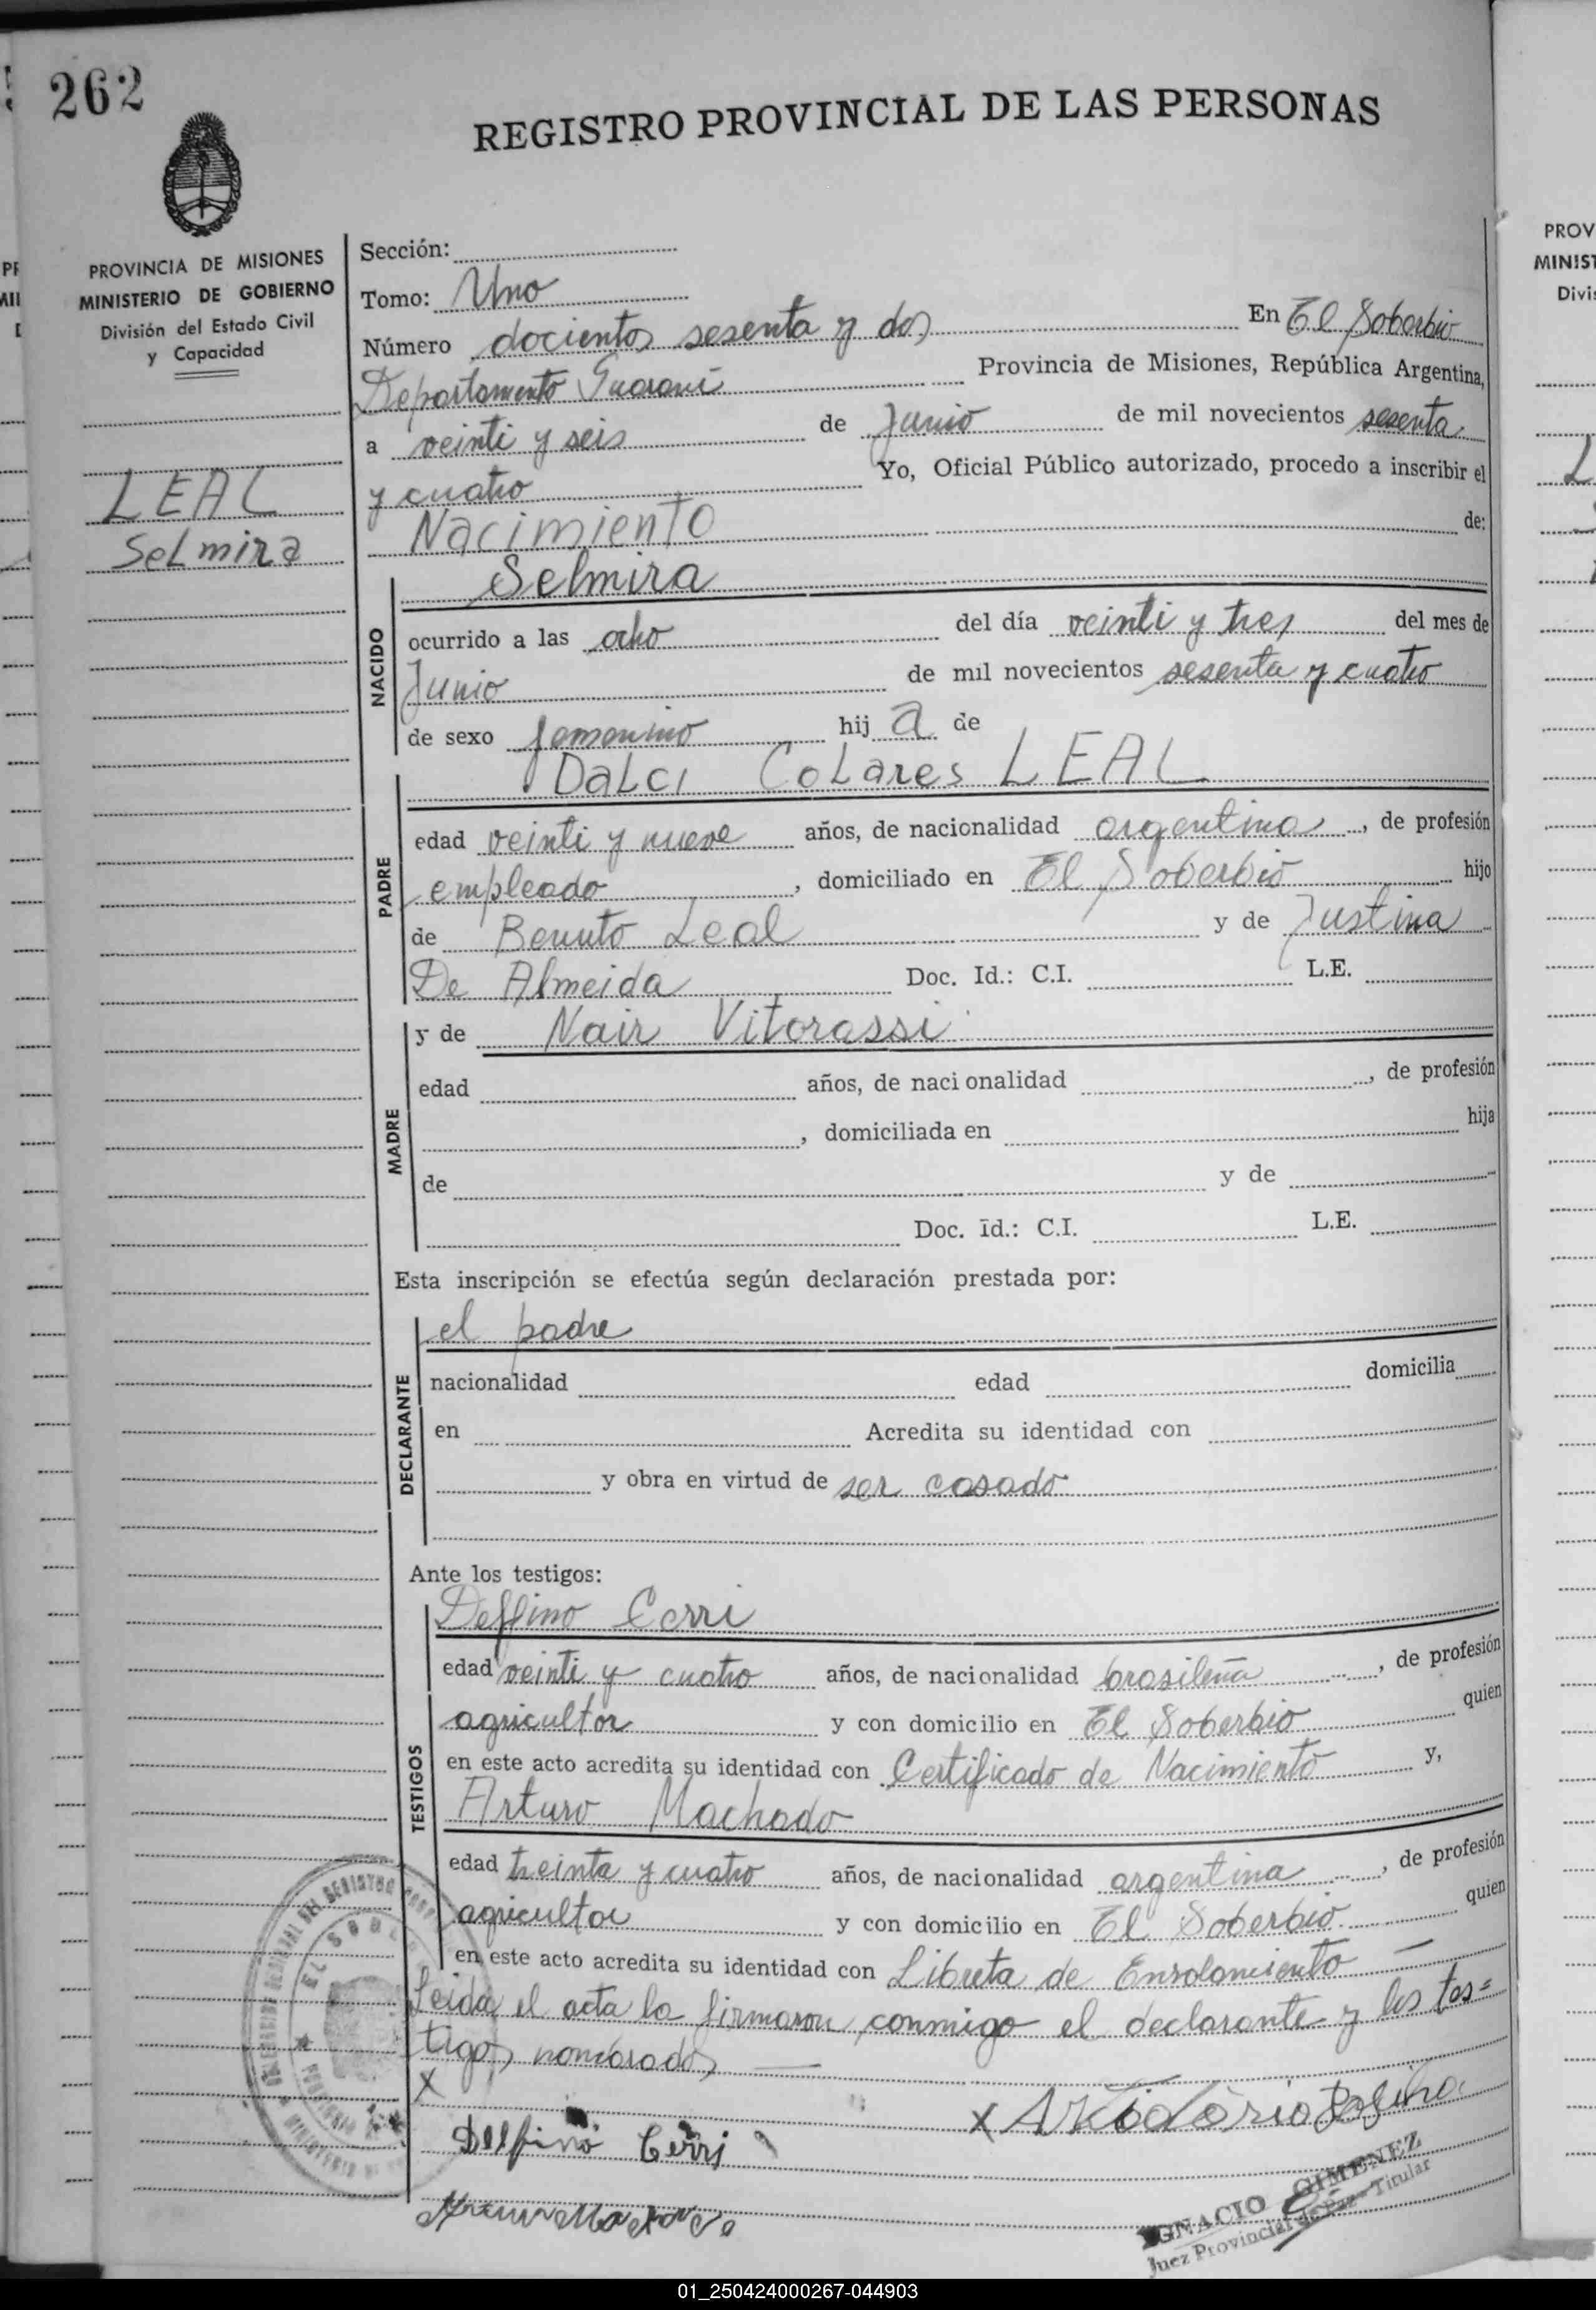 262
REGISTRO PROVINCIAL DE LAS PERSONAS
PROVINCIA DE MISIONES
MINISTERIO DE GOBIERNO
División del Estado Civil
y Capacidad
LEAL
Selmira
Sección:
Tomo: Uno
Número docientos sesenta y dos En El Soberbio
Departamento Guaraní Provincia de Misiones, República Argentina,
a veinti y seis de Junio de mil novecientos sesenta
y cuatro Yo, Oficial Público autorizado, procedo a inscribir el
Nacimiento de:
Selmira
NACIDO
ocurrido a las ocho del día veinti y tres del mes de
Junio de mil novecientos sesenta y cuatro
de sexo femenino hij a de
Dalci Colares LEAL
PADRE
edad veinti y nueve años, de nacionalidad argentina, de profesión
empleado, domiciliado en El Soberbio hijo
de Benuto Leal y de Justina
De Almeida Doc. Id.: C.I. L.E.
y de Nair Vitorassi
MADRE
edad años, de nacionalidad , de profesión
, domiciliada en hija
de y de
Doc. Id.: C.I. L.E.
Esta inscripción se efectúa según declaración prestada por:
el padre
DECLARANTE
nacionalidad edad domicilia
en Acredita su identidad con
y obra en virtud de ser casado
Ante los testigos:
Delfino Cerri
TESTIGOS
edad veinti y cuatro años, de nacionalidad brasileña, de profesión
agricultor y con domicilio en El Soberbio quien
en este acto acredita su identidad con Certificado de Nacimiento y,
Arturo Machado
edad treinta y cuatro años, de nacionalidad argentina, de profesión
agricultor y con domicilio en El Soberbio quien
en este acto acredita su identidad con Libreta de Enrolamiento —
Leida el acta la firmaron conmigo el declarante y los tes=
tigos nombrados —
X
X
Delfino Cerri
IGNACIO GIMENEZ
Juez Provincial de Paz - Titular
EL SOBE
PROV
MINIST
Divi
01_250424000267-044903